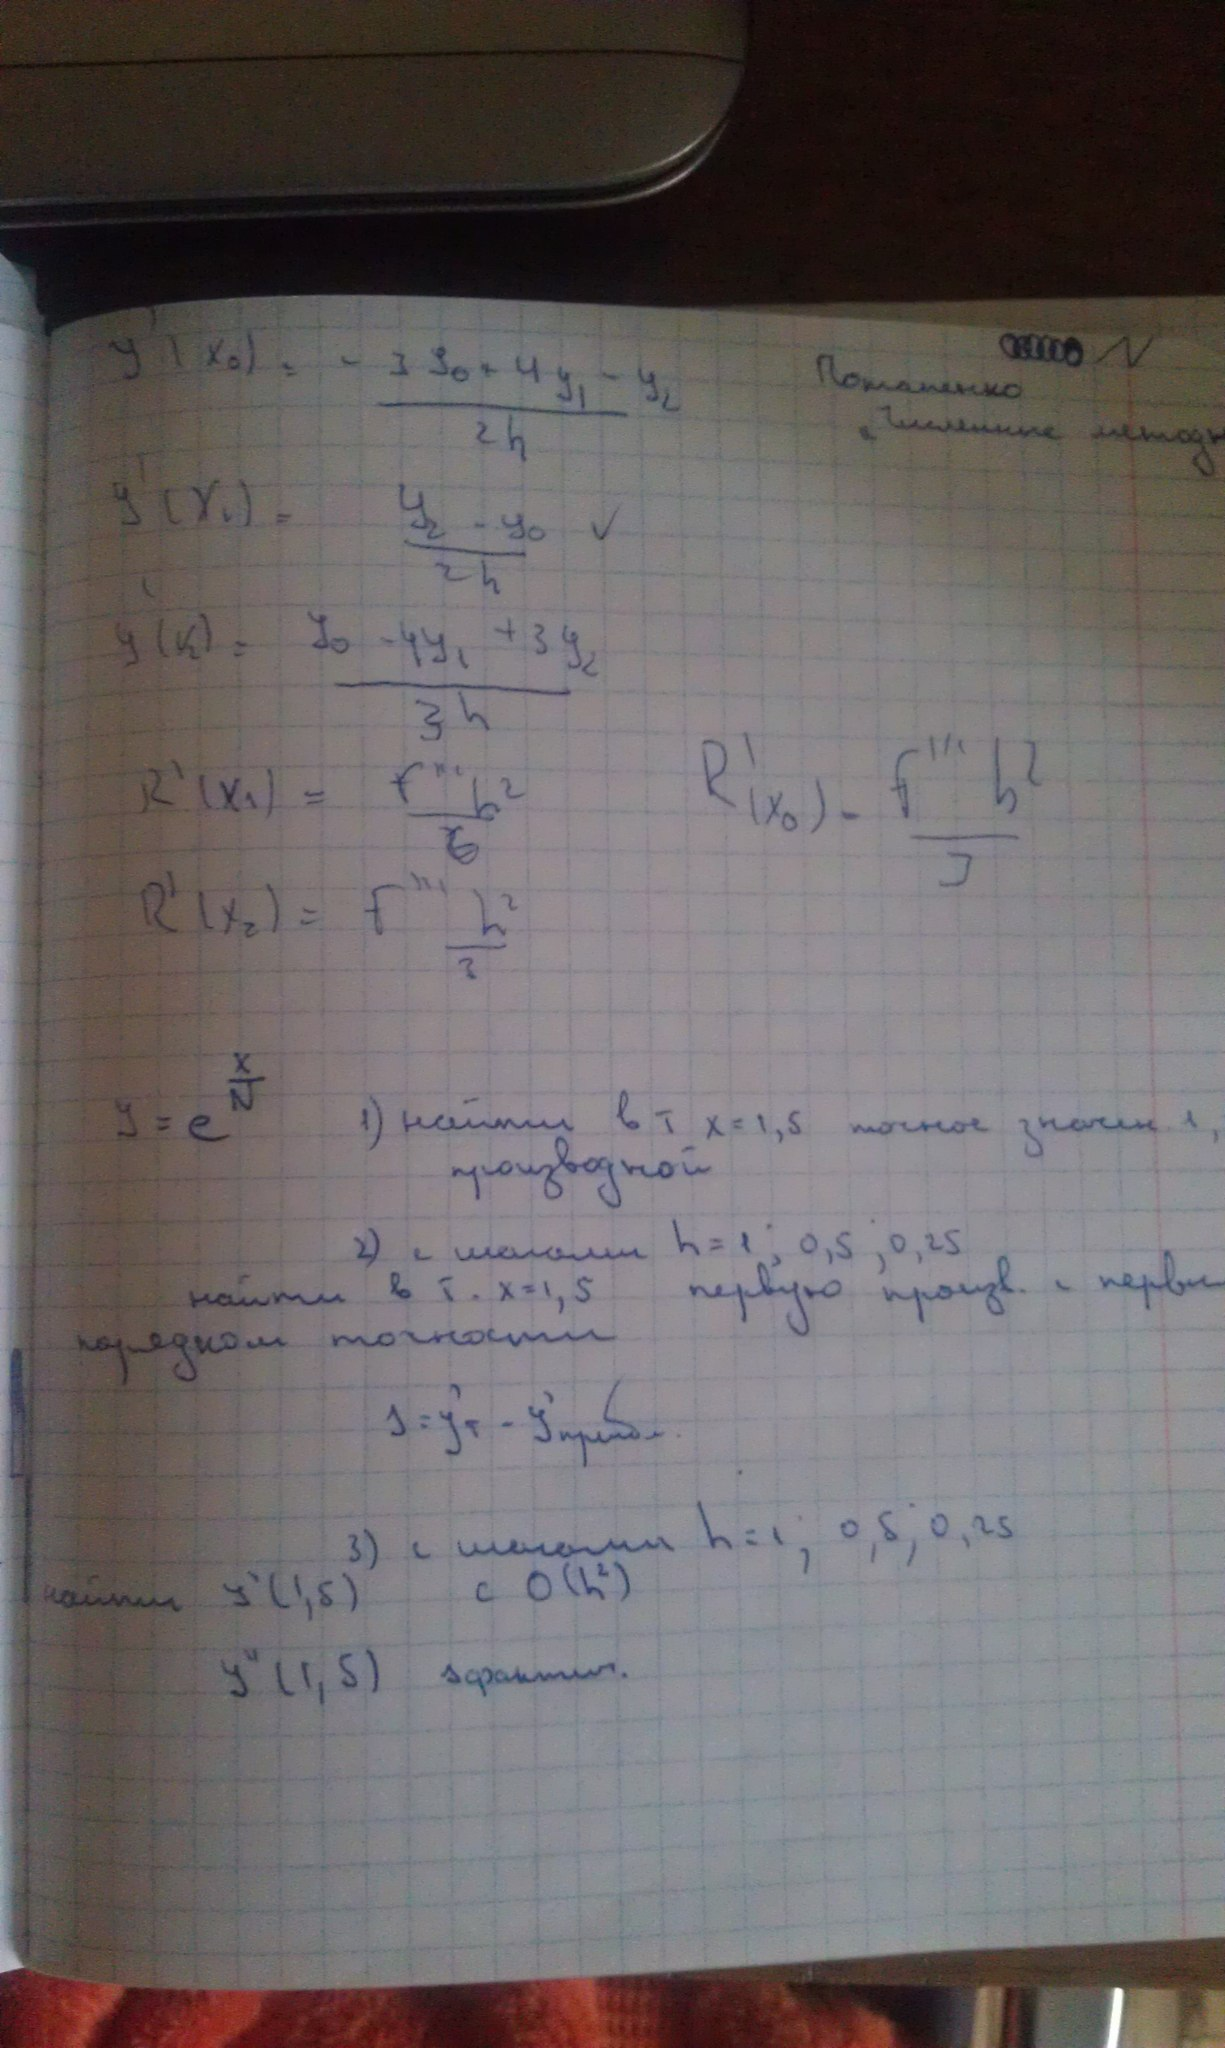 y'(x₀) = - 3y₀ + 4y₁ - y₂ / 2h
N
Потапенко
"Численные методы
y'(x₁) = y₂ - y₀ / 2h ✓
y'(x₂) = y₀ - 4y₁ + 3y₂ / 3h
R'(x₁) = f''' h² / 6
R'(x₀) = f''' h² / 3
R'(x₂) = f''' h² / 3
y = e^(x/N) 1) найти в т x = 1,5 точное значен 1,
производной
2) с шагами h = 1; 0,5; 0,25
найти в т. x = 1,5 первую произв. с первы
порядком точности
= y'т - y'прибл.
3) с шагами h = 1; 0,5; 0,25
найти y'(1,5) с O(h²)
y''(1,5)